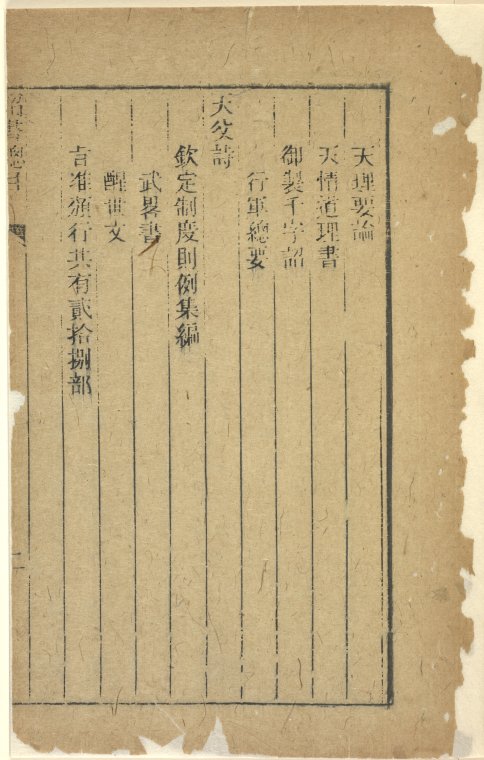 天理要論
天情道理書
御製千字詔
行軍總要
天父詩
欽定制度則例集編
武畧書
醒世文
旨准頒行共有貳拾捌部
詔書總目
二